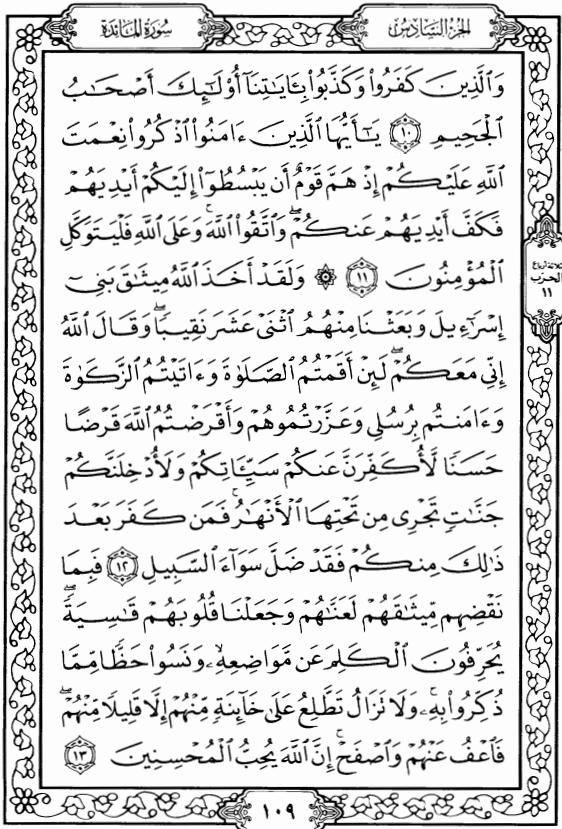 الجزء السادس
سورة المائدة
وَٱلَّذِينَ كَفَرُواْ وَكَذَّبُواْ بِـَٔايَٰتِنَآ أُوْلَٰٓئِكَ أَصْحَٰبُ
ٱلْجَحِيمِ ١٠ يَٰٓأَيُّهَا ٱلَّذِينَ ءَامَنُواْ ٱذْكُرُواْ نِعْمَتَ
ٱللَّهِ عَلَيْكُمْ إِذْ هَمَّ قَوْمٌ أَن يَبْسُطُوٓاْ إِلَيْكُمْ أَيْدِيَهُمْ
فَكَفَّ أَيْدِيَهُمْ عَنكُمْۖ وَٱتَّقُواْ ٱللَّهَۚ وَعَلَى ٱللَّهِ فَلْيَتَوَكَّلِ
ٱلْمُؤْمِنُونَ ١١ ۞ وَلَقَدْ أَخَذَ ٱللَّهُ مِيثَٰقَ بَنِىٓ
إِسْرَٰٓءِيلَ وَبَعَثْنَا مِنْهُمُ ٱثْنَىْ عَشَرَ نَقِيبًاۖ وَقَالَ ٱللَّهُ
إِنِّى مَعَكُمْۖ لَئِنْ أَقَمْتُمُ ٱلصَّلَوٰةَ وَءَاتَيْتُمُ ٱلزَّكَوٰةَ
وَءَامَنتُم بِرُسُلِى وَعَزَّرْتُمُوهُمْ وَأَقْرَضْتُمُ ٱللَّهَ قَرْضًا
حَسَنًا لَّأُكَفِّرَنَّ عَنكُمْ سَيِّـَٔاتِكُمْ وَلَأُدْخِلَنَّكُمْ
جَنَّٰتٍ تَجْرِى مِن تَحْتِهَا ٱلْأَنْهَٰرُۚ فَمَن كَفَرَ بَعْدَ
ذَٰلِكَ مِنكُمْ فَقَدْ ضَلَّ سَوَآءَ ٱلسَّبِيلِ ١٢ فَبِمَا
نَقْضِهِم مِّيثَٰقَهُمْ لَعَنَّٰهُمْ وَجَعَلْنَا قُلُوبَهُمْ قَٰسِيَةًۖ
يُحَرِّفُونَ ٱلْكَلِمَ عَن مَّوَاضِعِهِۦۙ وَنَسُواْ حَظًّا مِّمَّا
ذُكِّرُواْ بِهِۦۚ وَلَا تَزَالُ تَطَّلِعُ عَلَىٰ خَآئِنَةٍ مِّنْهُمْ إِلَّا قَلِيلًا مِّنْهُمْۖ
فَٱعْفُ عَنْهُمْ وَٱصْفَحْۚ إِنَّ ٱللَّهَ يُحِبُّ ٱلْمُحْسِنِينَ ١٣
ثلاثة أرباع
الحزب
١١
١٠٩